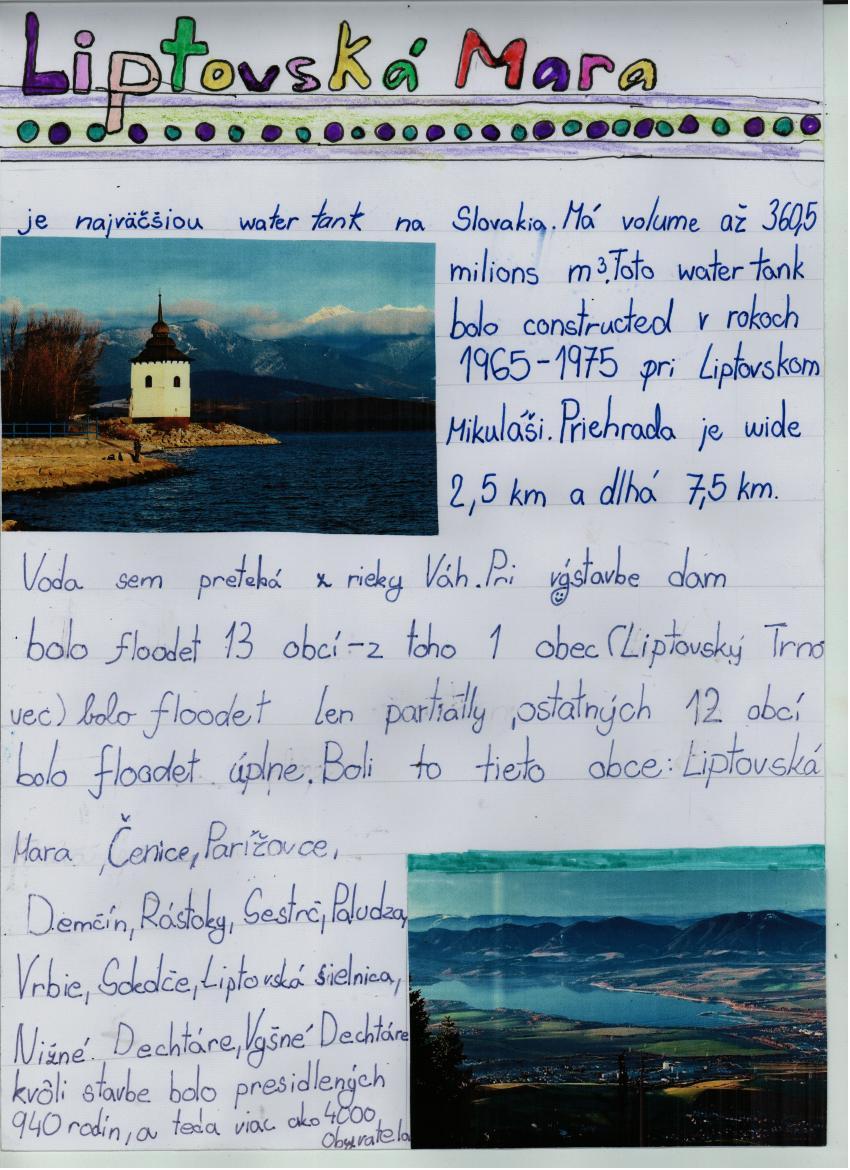 Liptovská Mara
je najväčšiou water tank na Slovakia. Má volume až 360,5
milions m³. Toto water tank
bolo constructed v rokoch
1965-1975 pri Liptovskom
Mikuláši. Priehrada je wide
2,5 km a dlhá 7,5 km.
Voda sem preteká z rieky Váh. Pri výstavbe dam
bolo floodet 13 obcí - z toho 1 obec (Liptovský Trno
vec) bolo floodet len partially, ostatných 12 obcí
bolo floodet úplne. Boli to tieto obce: Liptovská
Mara, Čenice, Parížovce,
Demčín, Rástoky, Sestrč, Paludza,
Vrbie, Sokolče, Liptovská sielnica,
Nižné Dechtáre, Vyšné Dechtáre
kvôli stavbe bolo presidlených
940 rodín, a teda viac ako 4000